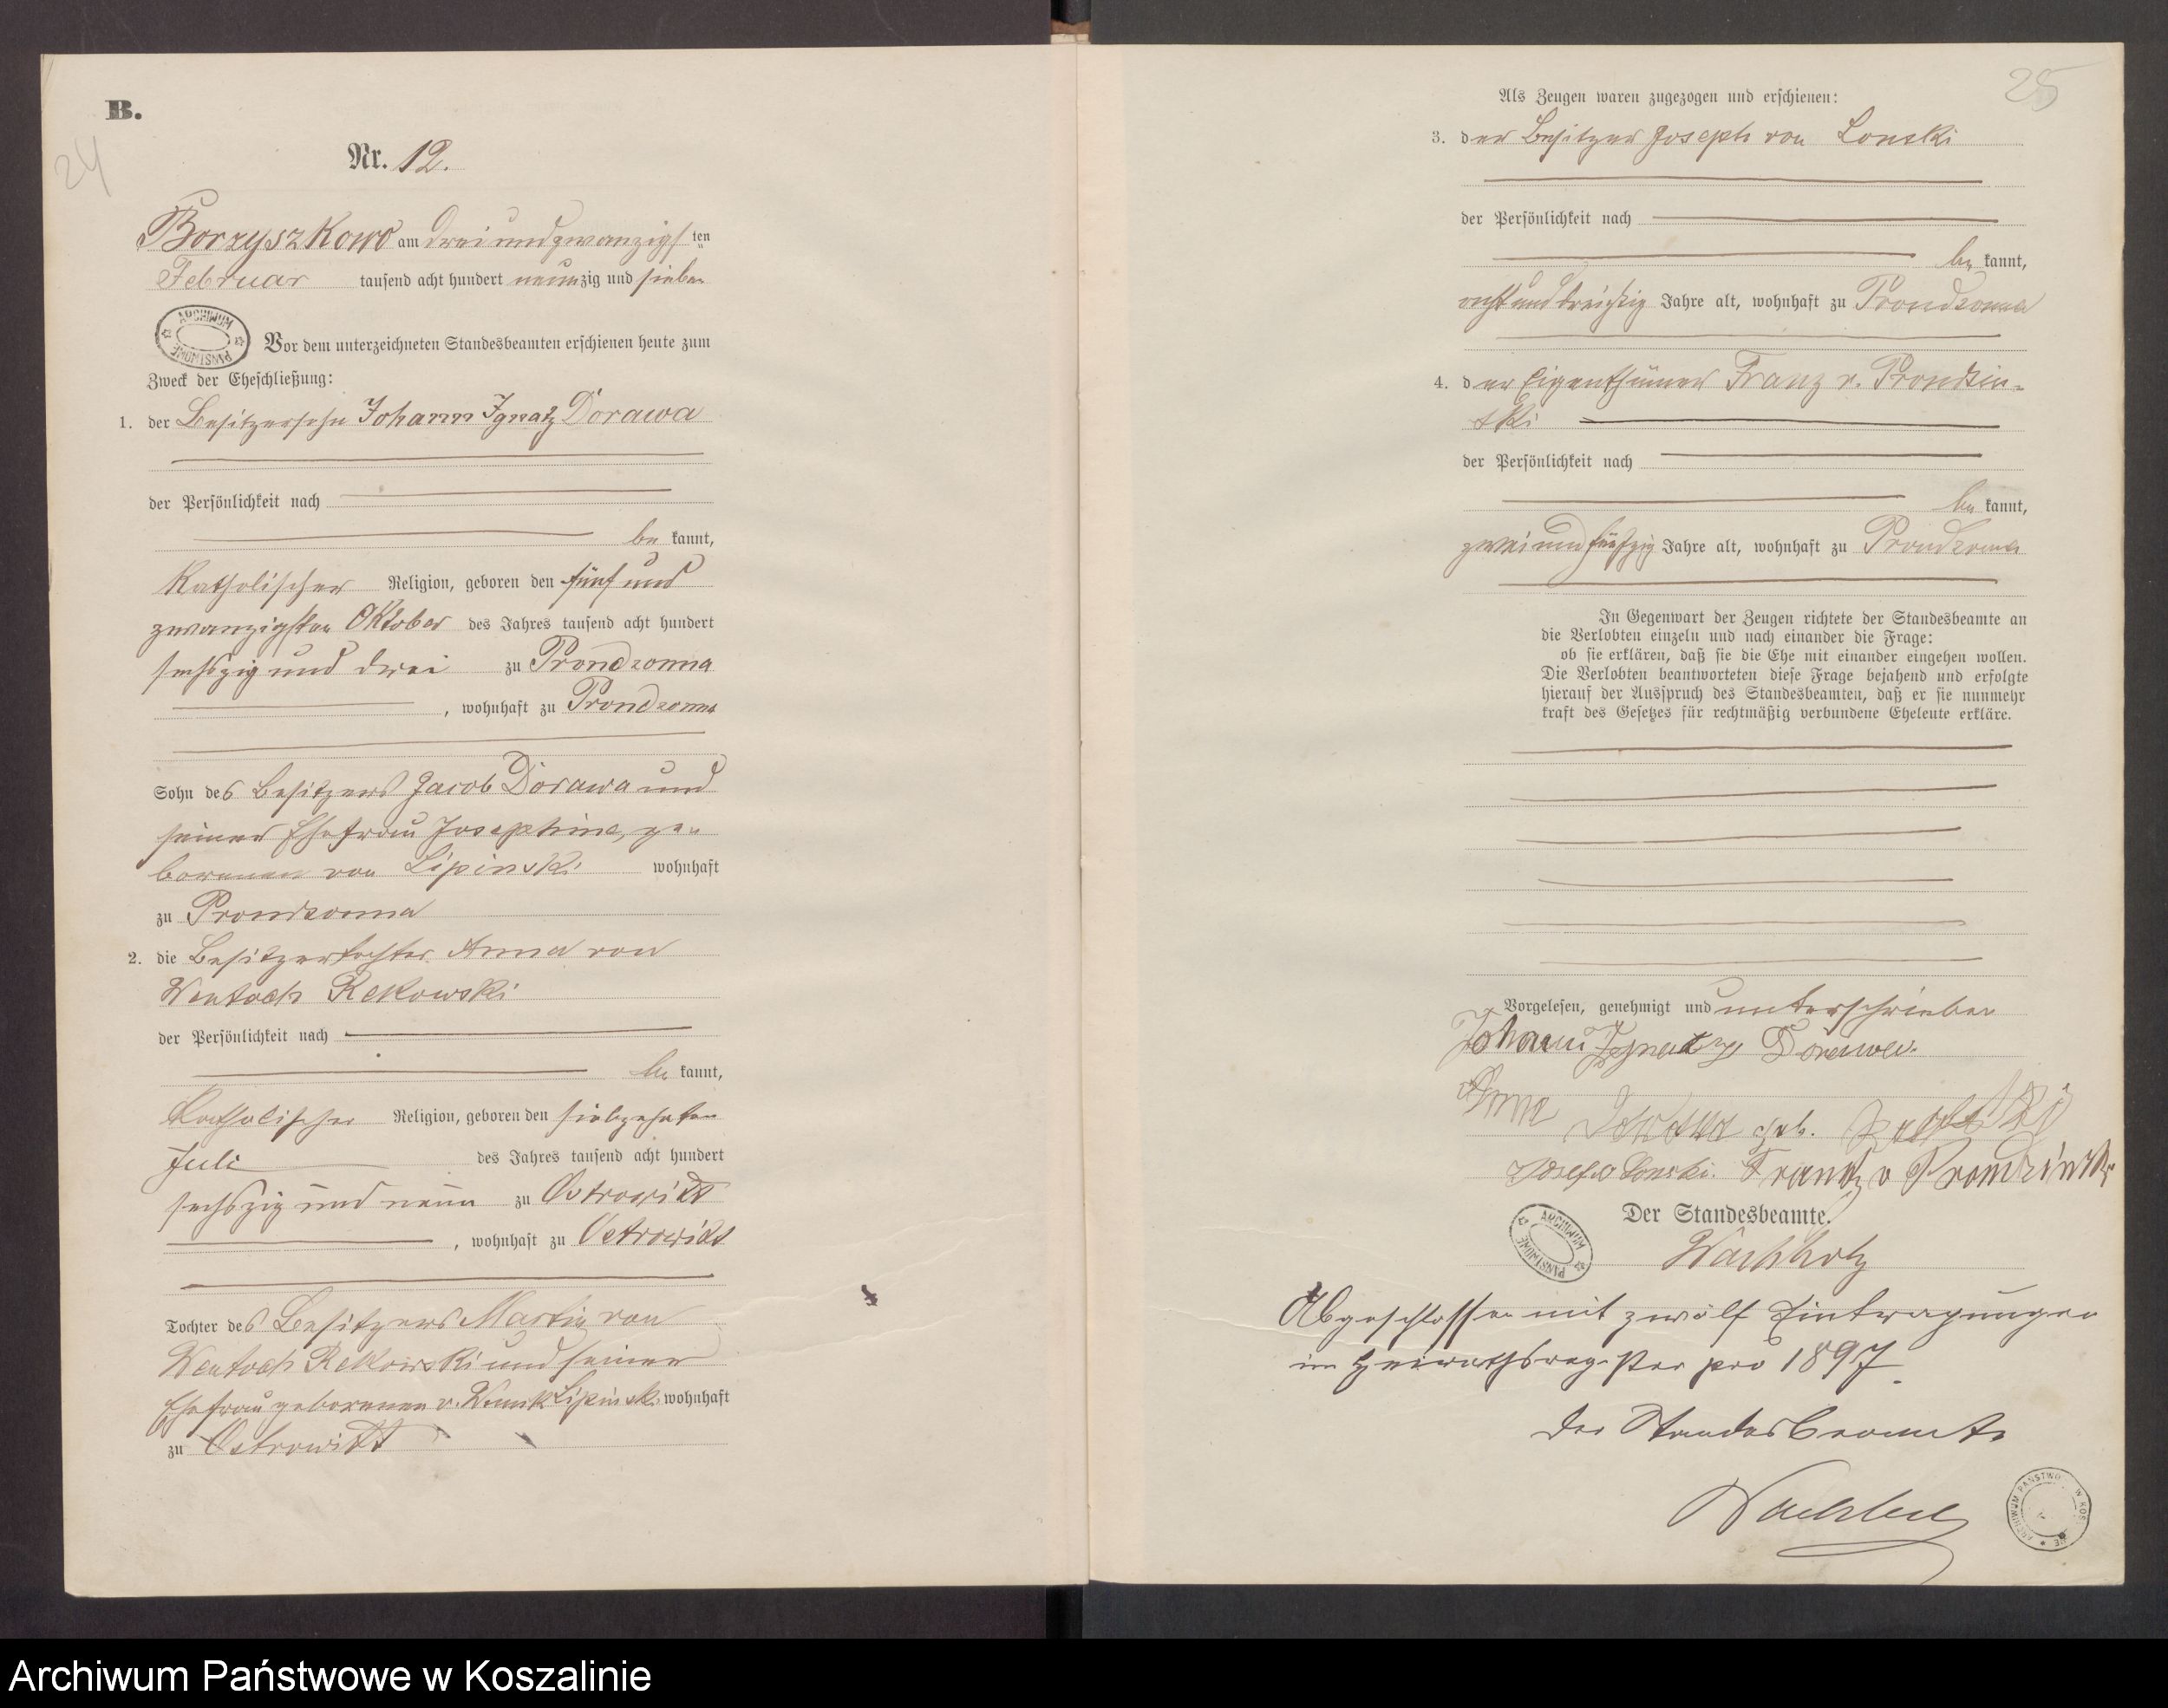 B.
24
Nr. 12.
Borzyszkowo am dreiundzwanzigsten
Februar tausend acht hundert neunzig und sieben
ARCHIWUM PAŃSTWOWE
Vor dem unterzeichneten Standesbeamten erschienen heute zum
Zweck der Eheschließung:
1. der Besitzersohn Johann Ignatz Dorawa
der Persönlichkeit nach
be kannt,
katholischer Religion, geboren den fünf und
zwanzigsten Oktober des Jahres tausend acht hundert
sechszig und drei zu Prondzonna
, wohnhaft zu Prondzonna
Sohn des Besitzers Jacob Dorawa und
seiner Ehefrau Josephine, ge-
borenen von Lipinski wohnhaft
zu Prondzonna
2. die Besitzertochter Anna von
Wentoch Rekowski
der Persönlichkeit nach
be kannt,
katholischer Religion, geboren den siebzehnten
Juli des Jahres tausend acht hundert
sechszig und neun zu Ostrowitt
, wohnhaft zu Ostrowitt
Tochter des Besitzers Martin von
Wentoch Rekowski und seiner
Ehefrau geborenen v. Wnuk Lipinski wohnhaft
zu Ostrowitt
25
Als Zeugen waren zugezogen und erschienen:
3. der Besitzer Joseph von Lonski
der Persönlichkeit nach
be kannt,
achtunddreißig Jahre alt, wohnhaft zu Prondzonna
4. der Eigenthümer Franz v. Prondzin-
ski
der Persönlichkeit nach
be kannt,
zweiundfünfzig Jahre alt, wohnhaft zu Prondzonna
In Gegenwart der Zeugen richtete der Standesbeamte an
die Verlobten einzeln und nach einander die Frage:
ob sie erklären, daß sie die Ehe mit einander eingehen wollen.
Die Verlobten beantworteten diese Frage bejahend und erfolgte
hierauf der Ausspruch des Standesbeamten, daß er sie nunmehr
kraft des Gesetzes für rechtmäßig verbundene Eheleute erkläre.
Vorgelesen, genehmigt und unterschrieben
Johann Ignatz Dorawa.
Anna Dorawa geb.
Josef v Lonski. Frantz v Prondzinski
Der Standesbeamte.
ARCHIWUM PAŃSTWOWE
Wachholz
Abgeschlossen mit zwölf Eintragungen
im Heirathsregister pro 1897.
Der Standesbeamte
Wachholz
ARCHIWUM PAŃSTWO
Archiwum Państwowe w Koszalinie